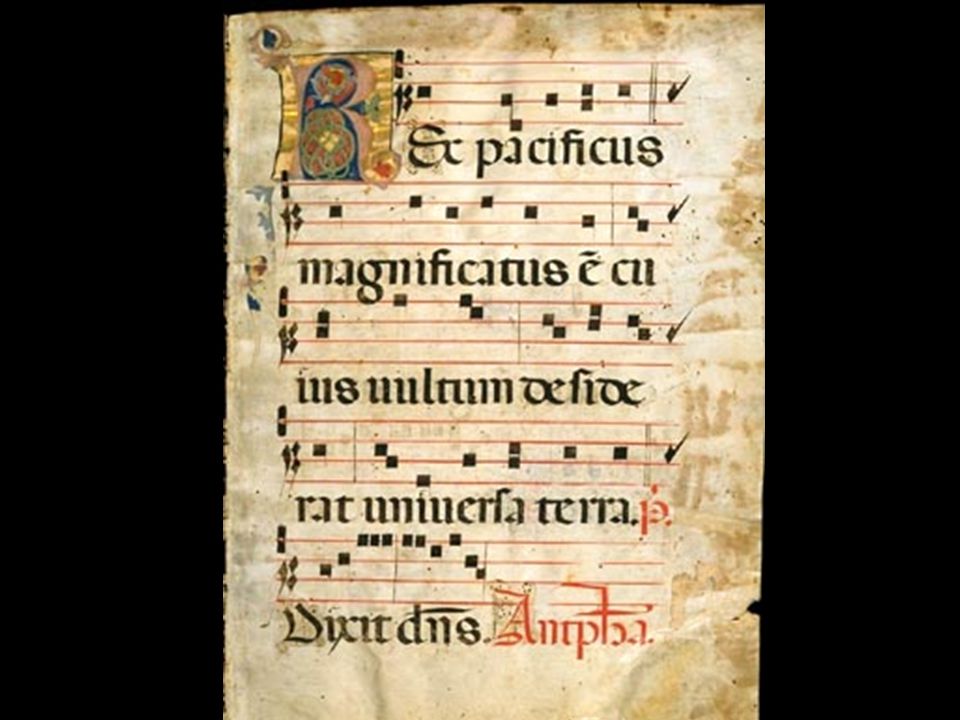 REx pacificus
magnificatus ē cu
ius uultum deside
rat uniuersa terra. p̄.
Dixit dn̄s. Antipħa.